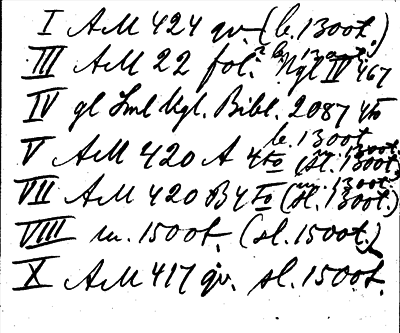 I AM 424 qv. (b. 1300t.)
III AM 22 fol. Ngl IV 467
IV gl Sml Kgl. Bibl. 2087 4to
b. 1300t.
V AM 420 A 4to (sl. 1300t.)
VII AM 420 B 4to (sl. 1300t.)
VIII m. 1500t. (sl. 1500t.)
X AM 417 qv. sl. 1500t.